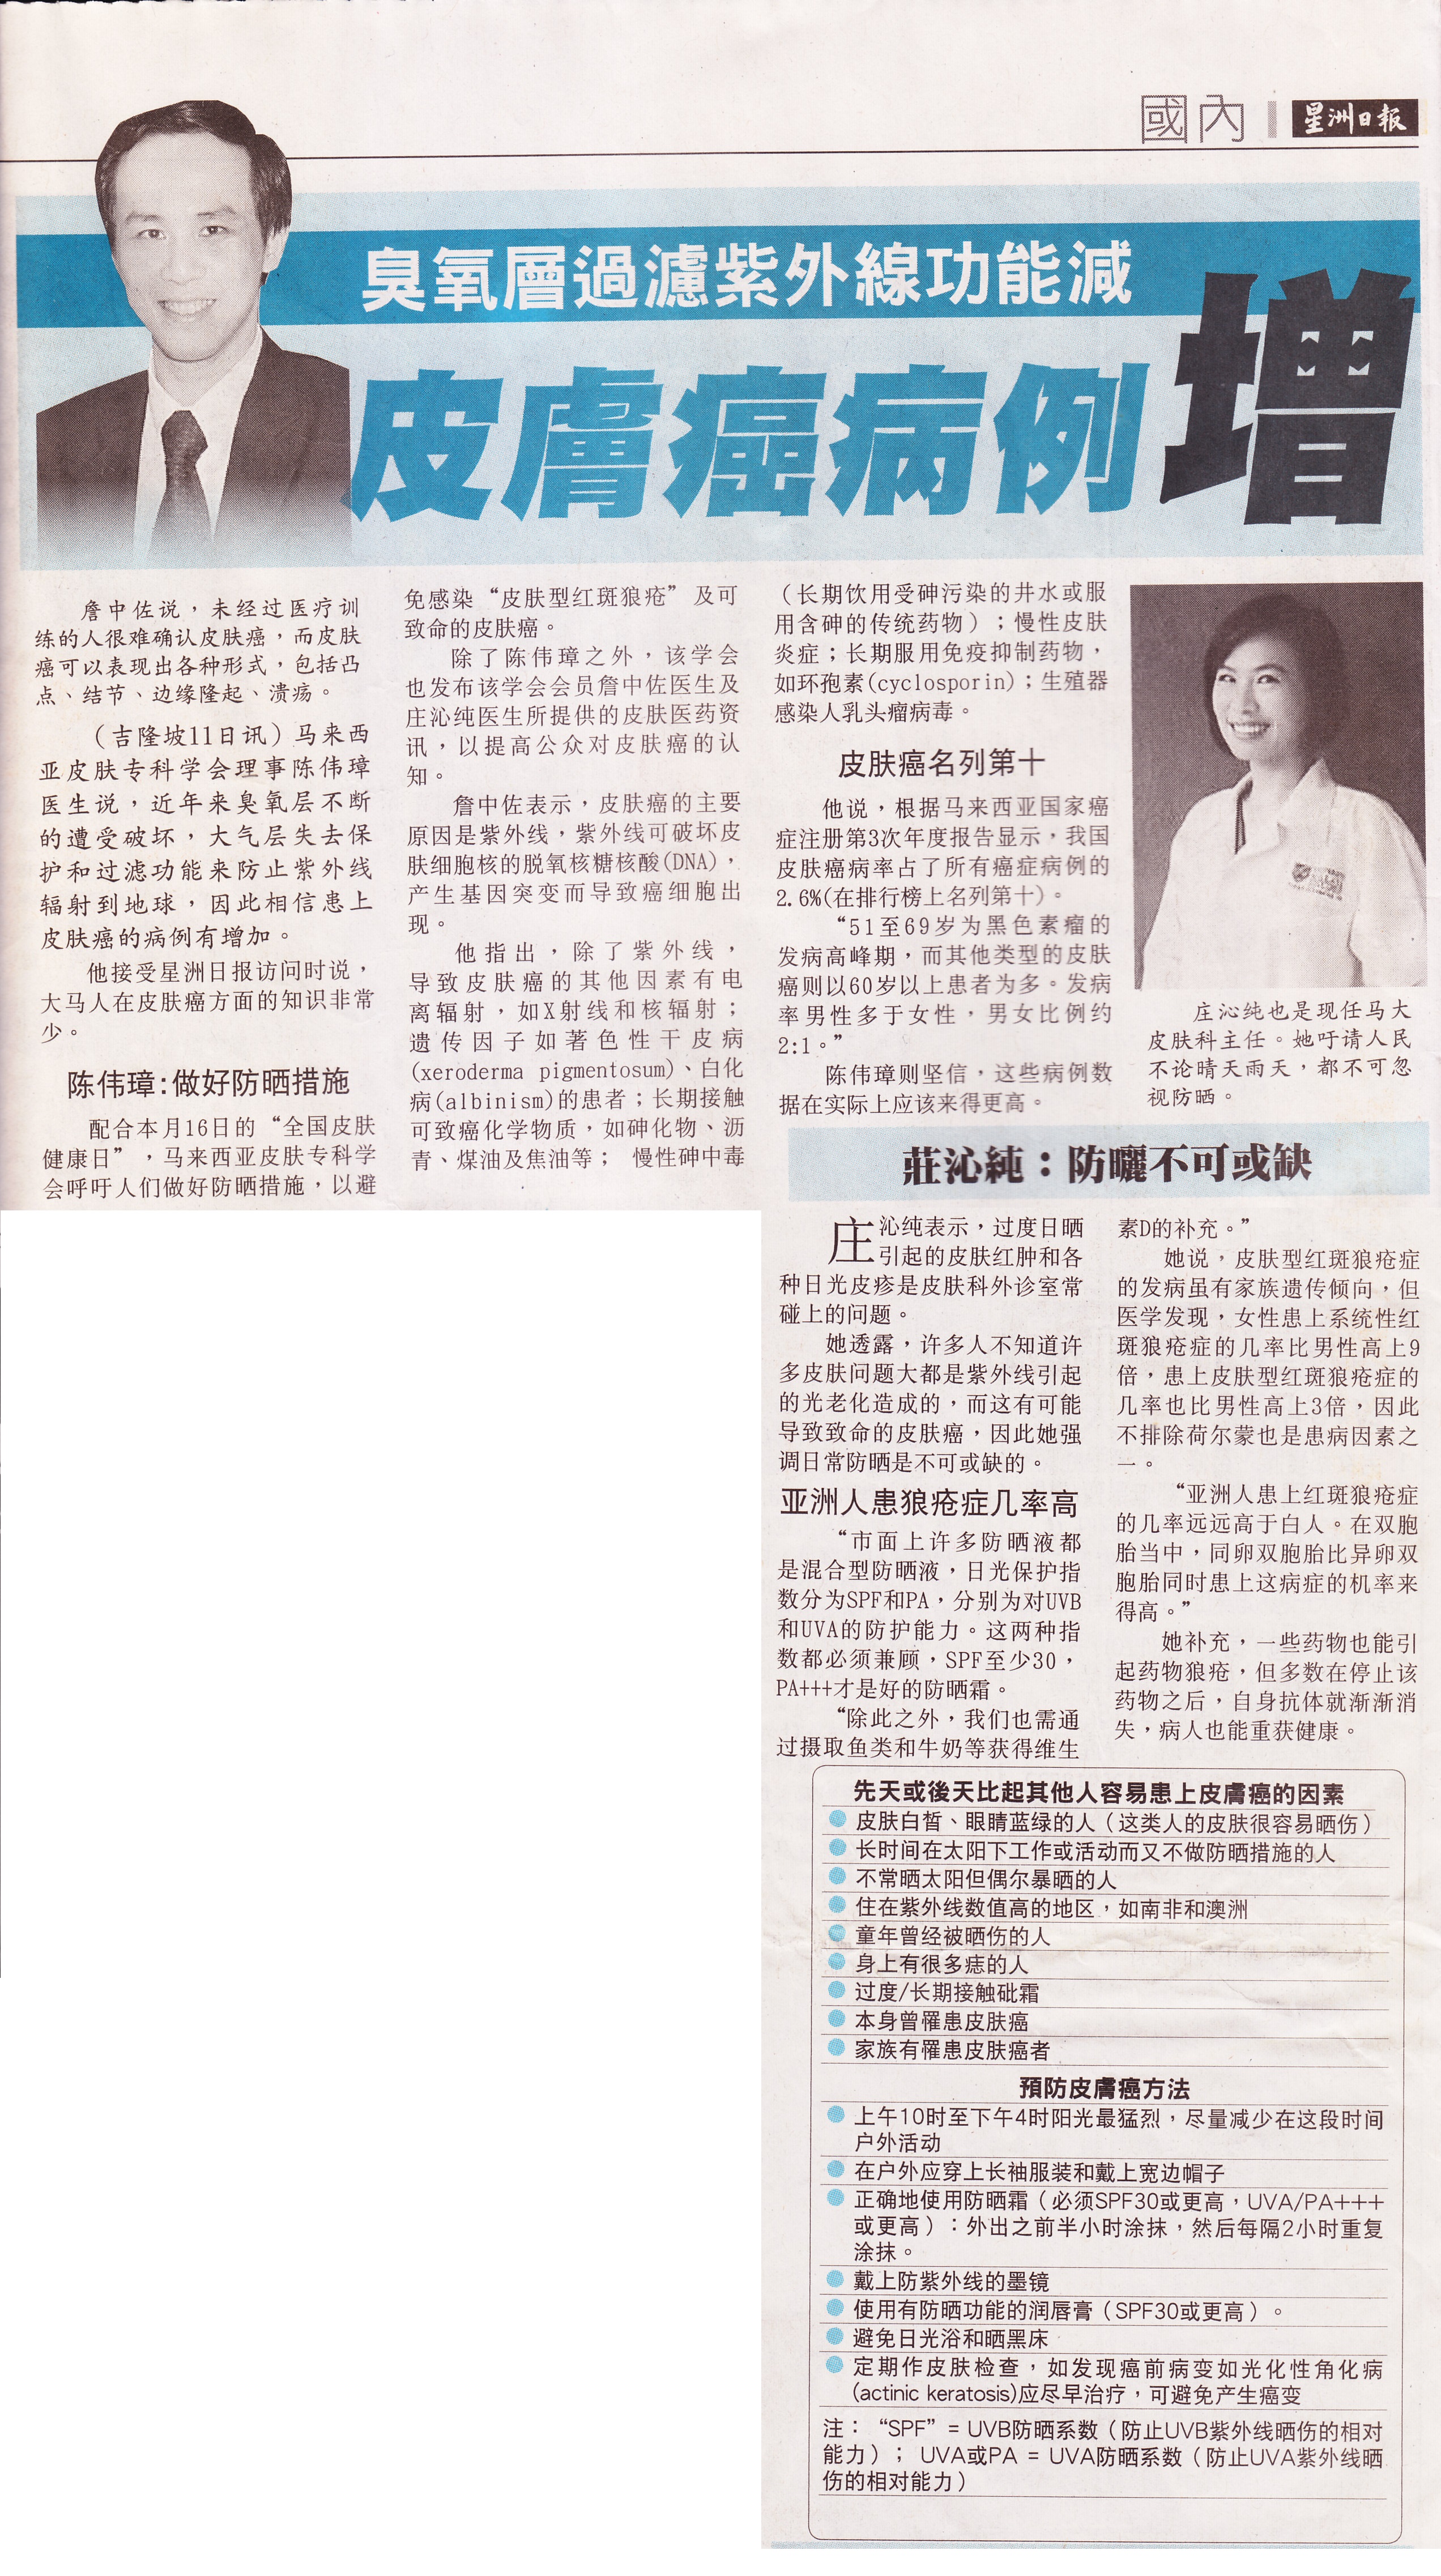 國內
星洲日報
臭氧層過濾紫外線功能減
皮膚癌病例增
詹中佐说，未经过医疗训
练的人很难确认皮肤癌，而皮肤
癌可以表现出各种形式，包括凸
点、结节、边缘隆起、溃疡。
（吉隆坡11日讯）马来西
亚皮肤专科学会理事陈伟璋
医生说，近年来臭氧层不断
的遭受破坏，大气层失去保
护和过滤功能来防止紫外线
辐射到地球，因此相信患上
皮肤癌的病例有增加。
他接受星洲日报访问时说，
大马人在皮肤癌方面的知识非常
少。
陈伟璋:做好防晒措施
配合本月16日的“全国皮肤
健康日”，马来西亚皮肤专科学
会呼吁人们做好防晒措施，以避
免感染“皮肤型红斑狼疮”及可
致命的皮肤癌。
除了陈伟璋之外，该学会
也发布该学会会员詹中佐医生及
庄沁纯医生所提供的皮肤医药资
讯，以提高公众对皮肤癌的认
知。
詹中佐表示，皮肤癌的主要
原因是紫外线，紫外线可破坏皮
肤细胞核的脱氧核糖核酸(DNA)，
产生基因突变而导致癌细胞出
现。
他指出，除了紫外线，
导致皮肤癌的其他因素有电
离辐射，如X射线和核辐射；
遗传因子如著色性干皮病
(xeroderma pigmentosum)、白化
病(albinism)的患者；长期接触
可致癌化学物质，如砷化物、沥
青、煤油及焦油等； 慢性砷中毒
（长期饮用受砷污染的井水或服
用含砷的传统药物）；慢性皮肤
炎症；长期服用免疫抑制药物，
如环孢素(cyclosporin)；生殖器
感染人乳头瘤病毒。
皮肤癌名列第十
他说，根据马来西亚国家癌
症注册第3次年度报告显示，我国
皮肤癌病率占了所有癌症病例的
2.6%(在排行榜上名列第十)。
“51至69岁为黑色素瘤的
发病高峰期，而其他类型的皮肤
癌则以60岁以上患者为多。发病
率男性多于女性，男女比例约
2:1。”
陈伟璋则坚信，这些病例数
据在实际上应该来得更高。
庄沁纯也是现任马大
皮肤科主任。她吁请人民
不论晴天雨天，都不可忽
视防晒。
莊沁純：防曬不可或缺
庄沁纯表示，过度日晒
引起的皮肤红肿和各
种日光皮疹是皮肤科外诊室常
碰上的问题。
她透露，许多人不知道许
多皮肤问题大都是紫外线引起
的光老化造成的，而这有可能
导致致命的皮肤癌，因此她强
调日常防晒是不可或缺的。
亚洲人患狼疮症几率高
“市面上许多防晒液都
是混合型防晒液，日光保护指
数分为SPF和PA，分别为对UVB
和UVA的防护能力。这两种指
数都必须兼顾，SPF至少30，
PA+++才是好的防晒霜。
“除此之外，我们也需通
过摄取鱼类和牛奶等获得维生
素D的补充。”
她说，皮肤型红斑狼疮症
的发病虽有家族遗传倾向，但
医学发现，女性患上系统性红
斑狼疮症的几率比男性高上9
倍，患上皮肤型红斑狼疮症的
几率也比男性高上3倍，因此
不排除荷尔蒙也是患病因素之
一。
“亚洲人患上红斑狼疮症
的几率远远高于白人。在双胞
胎当中，同卵双胞胎比异卵双
胞胎同时患上这病症的机率来
得高。”
她补充，一些药物也能引
起药物狼疮，但多数在停止该
药物之后，自身抗体就渐渐消
失，病人也能重获健康。
先天或後天比起其他人容易患上皮膚癌的因素
皮肤白皙、眼睛蓝绿的人（这类人的皮肤很容易晒伤）
长时间在太阳下工作或活动而又不做防晒措施的人
不常晒太阳但偶尔暴晒的人
住在紫外线数值高的地区，如南非和澳洲
童年曾经被晒伤的人
身上有很多痣的人
过度/长期接触砒霜
本身曾罹患皮肤癌
家族有罹患皮肤癌者
預防皮膚癌方法
上午10时至下午4时阳光最猛烈，尽量减少在这段时间
户外活动
在户外应穿上长袖服装和戴上宽边帽子
正确地使用防晒霜（必须SPF30或更高，UVA/PA+++
或更高）：外出之前半小时涂抹，然后每隔2小时重复
涂抹。
戴上防紫外线的墨镜
使用有防晒功能的润唇膏（SPF30或更高）。
避免日光浴和晒黑床
定期作皮肤检查，如发现癌前病变如光化性角化病
(actinic keratosis)应尽早治疗，可避免产生癌变
注：“SPF”= UVB防晒系数（防止UVB紫外线晒伤的相对
能力）； UVA或PA = UVA防晒系数（防止UVA紫外线晒
伤的相对能力）